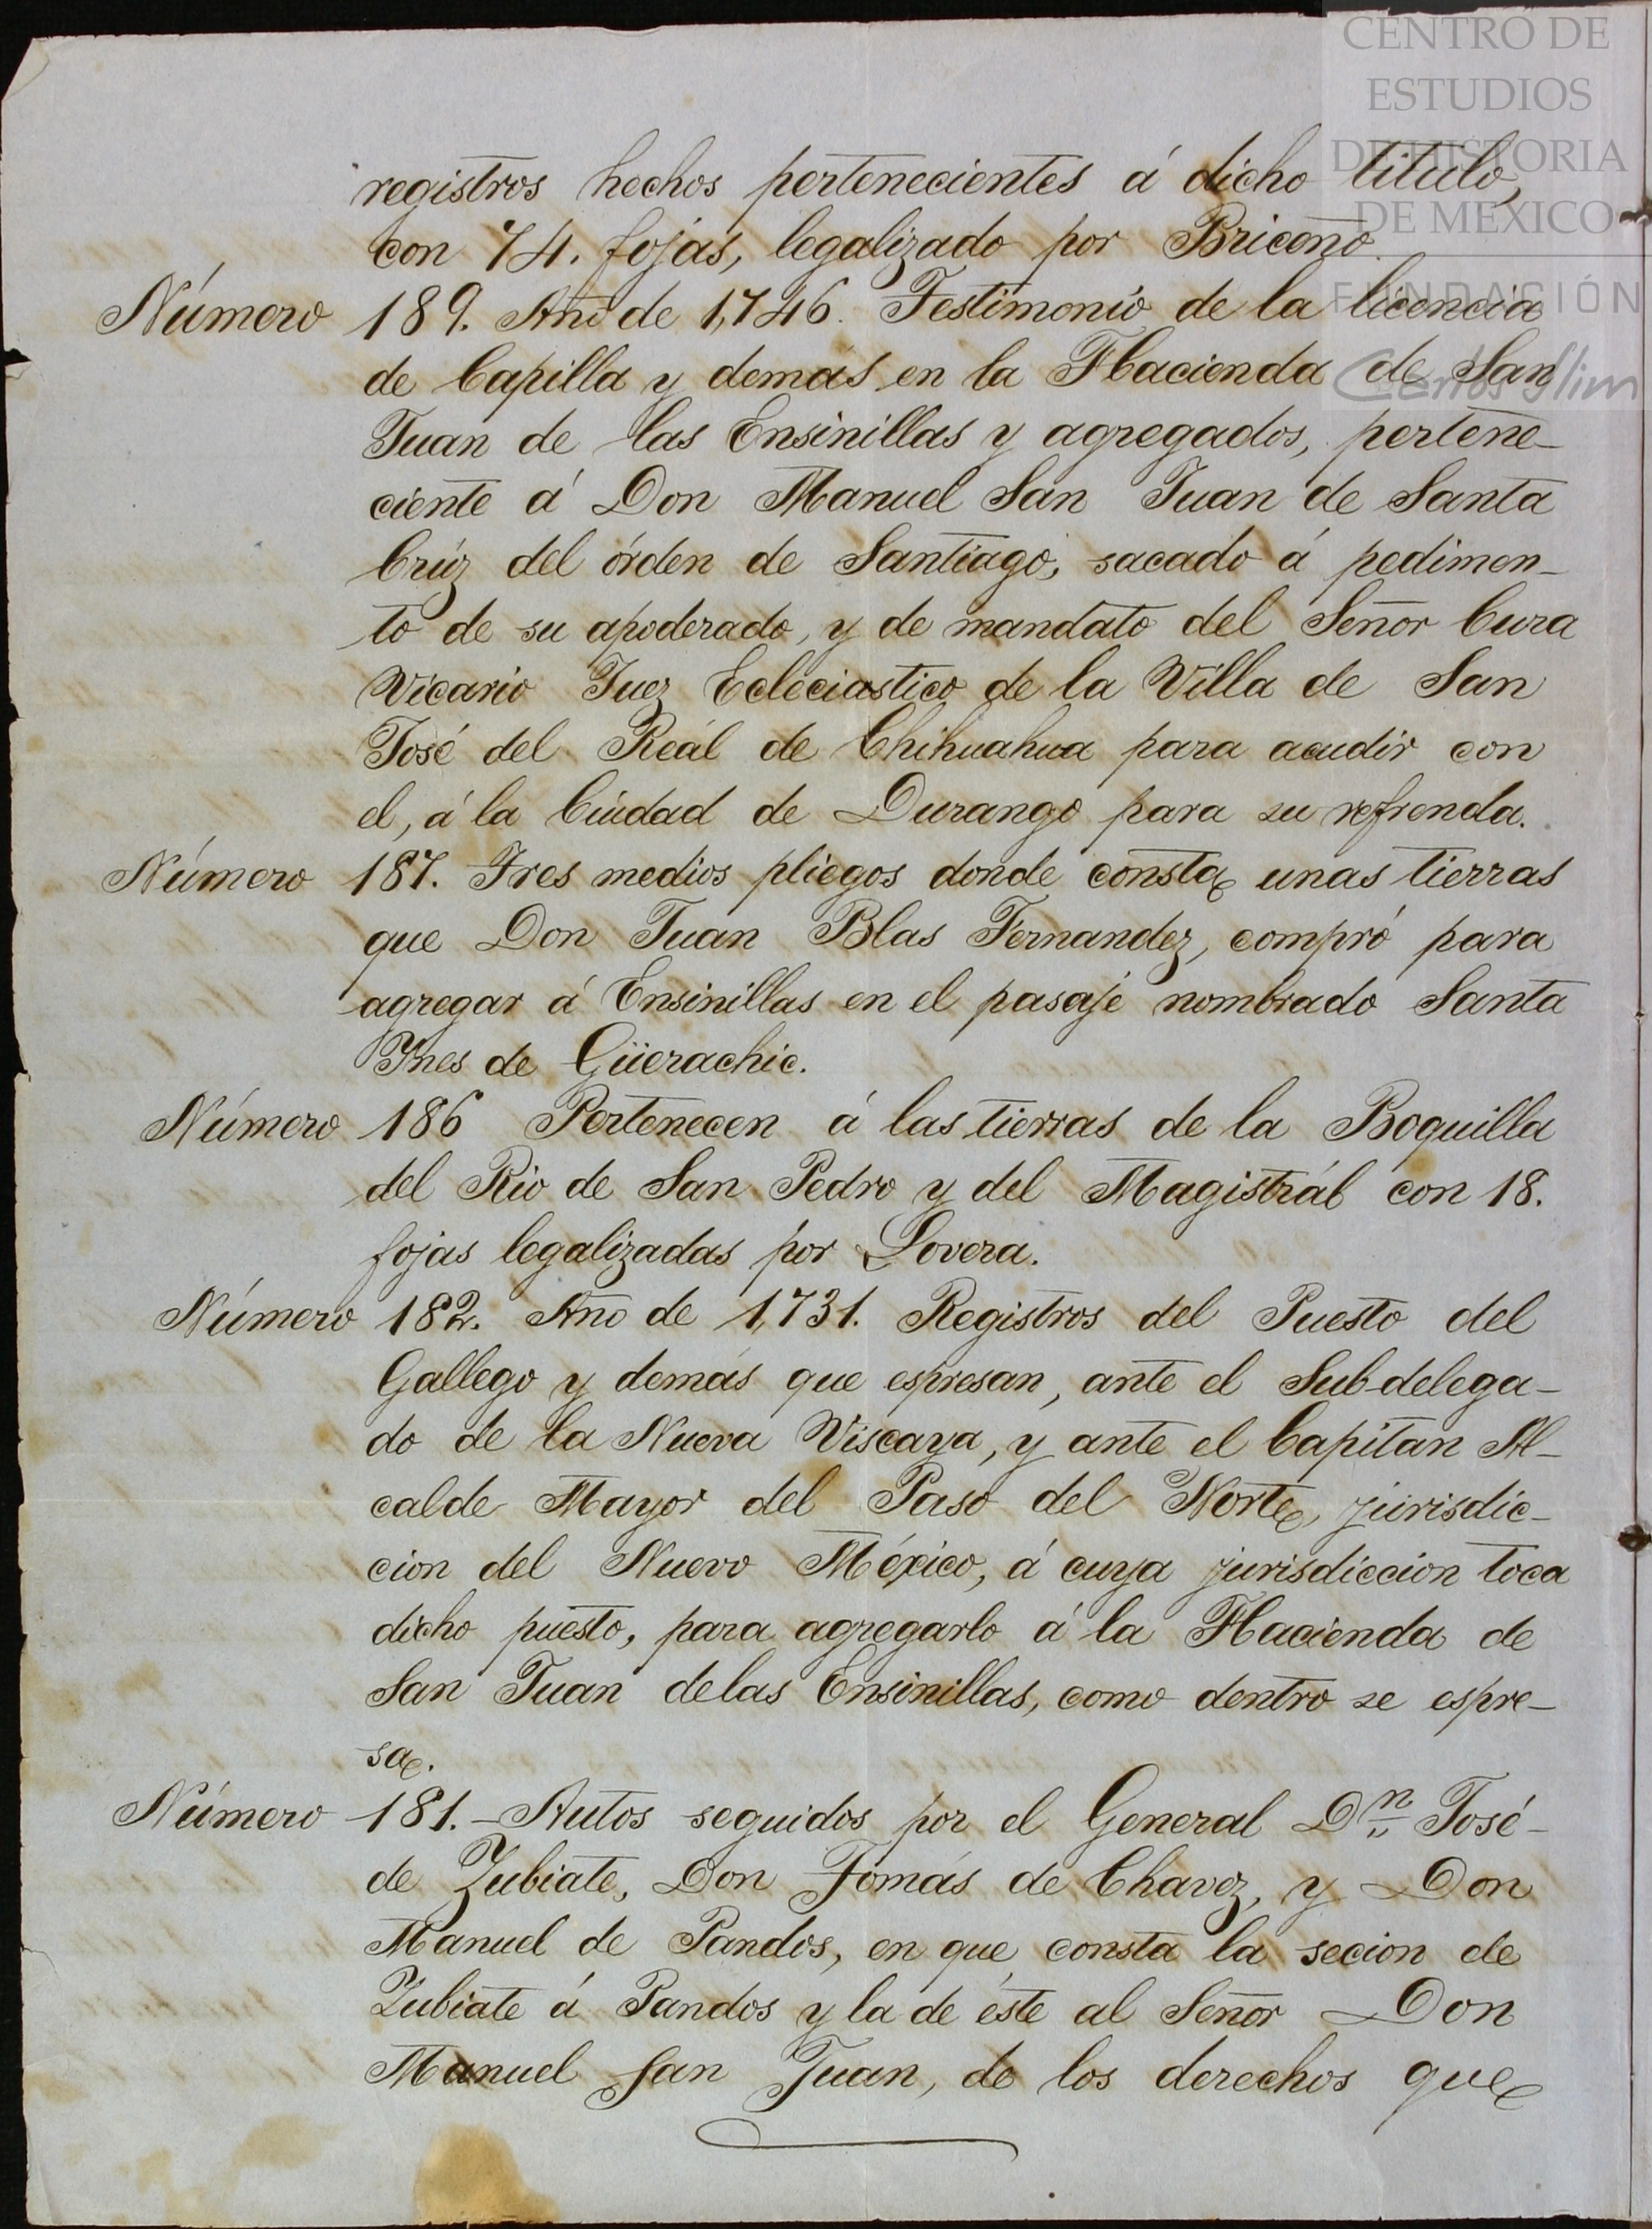 CENTRO DE
ESTUDIOS
DE HISTORIA
DE MEXICO
FUNDACIÓN
Carlos Slim
registros hechos pertenecientes á dicho titulo,
con 74. fojas, legalizado por Briceño.
Número 189. Año de 1,746. Testimonio de la licencia
de Capilla y demás en la Hacienda de San
Juan de las Ensinillas y agregados, pertene-
ciente á Don Manuel San Juan de Santa
Crúz del órden de Santiago, sacado á pedimen-
to de su apoderado, y de mandato del Señor Cura
Vicario Juez Ecleciastico de la Villa de San
José del Reál de Chihuahua para acudir con
el, á la Ciudad de Durango para su refrenda.
Número 187. Tres medios pliegos donde consta unas tierras
que Don Juan Blas Fernandez, compró para
agregar á Ensinillas en el pasaje nombrado Santa
Ynes de Güerachic.
Número 186 Pertenecen á las tierras de la Boquilla
del Rio de San Pedro y del Magistrál con 18.
fojas legalizadas por Lovera.
Número 182. Año de 1,731. Registros del Puesto del
Gallego y demás que espresan, ante el Sub-delega-
do de la Nueva Viscaya, y ante el Capitan Al-
calde Mayor del Paso del Norte, jurisdic-
cion del Nuevo México, á cuya jurisdiccion toca
dicho puesto, para agregarlo á la Hacienda de
San Juan delas Ensinillas, como dentro se espre-
sa.
Número 181.- Autos seguidos por el General Dn. José-
de Zubiate, Don Tomás de Chavez, y Don
Manuel de Pandos, en que consta la secion de
Zubiate á Pandos y la de éste al Señor Don
Manuel San Juan, de los derechos que